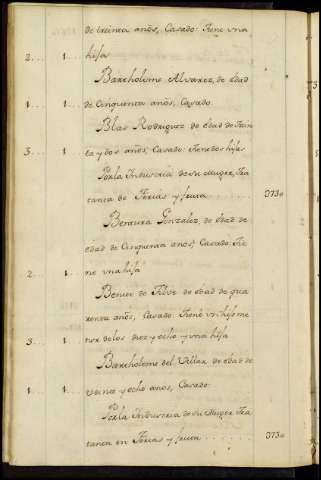 de treinta años, Casado: Tiene vna
2... 1... hija
Bartholome Alvarez, de edad
1... 1... de Cinquenta años, Casado
Blas Rodriguez de edad de trein
3... 1... ta y dos años, Casado: tiene dos hijas
Por la Industria de su Muger, Tra
tanta de Ferias y fruta ........ 373o
Bentura Gonzalez, de edad de
edad de Cinquenta años, Casado. Tie
2.. 1.. ne vna hija
Benito de de edad de qua
renta años, Casado. Tiene vn hijo me
3.. 1.. nor de los diez y ocho y vna hija
Bartholome del Villar de edad de
1.. 1.. veinte y ocho años, Casado
Por la Industria de su Muger Tra
tanta en Ferias y fruta ........ 373o